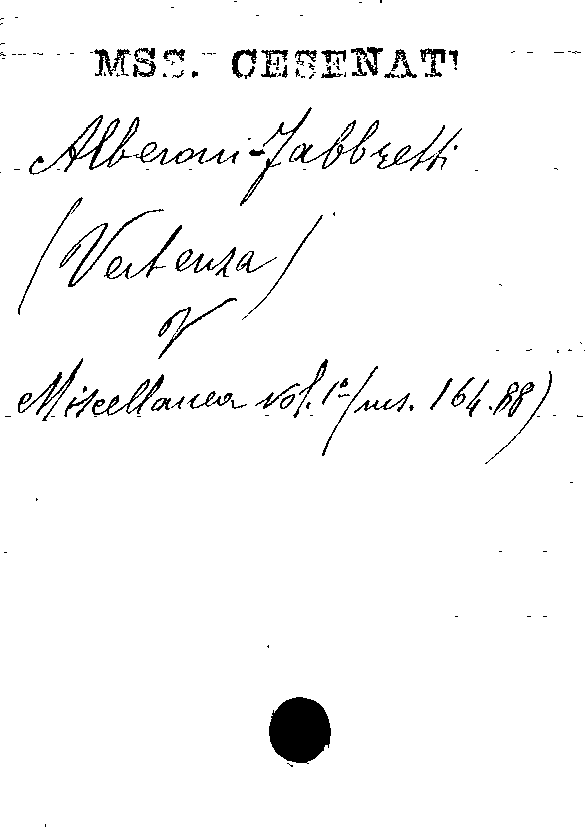 MSS. CESENATI
Alberoni-Fabbretti
(Vertenza)
V
Miscellanea vol. 1º (ms. 164.88)